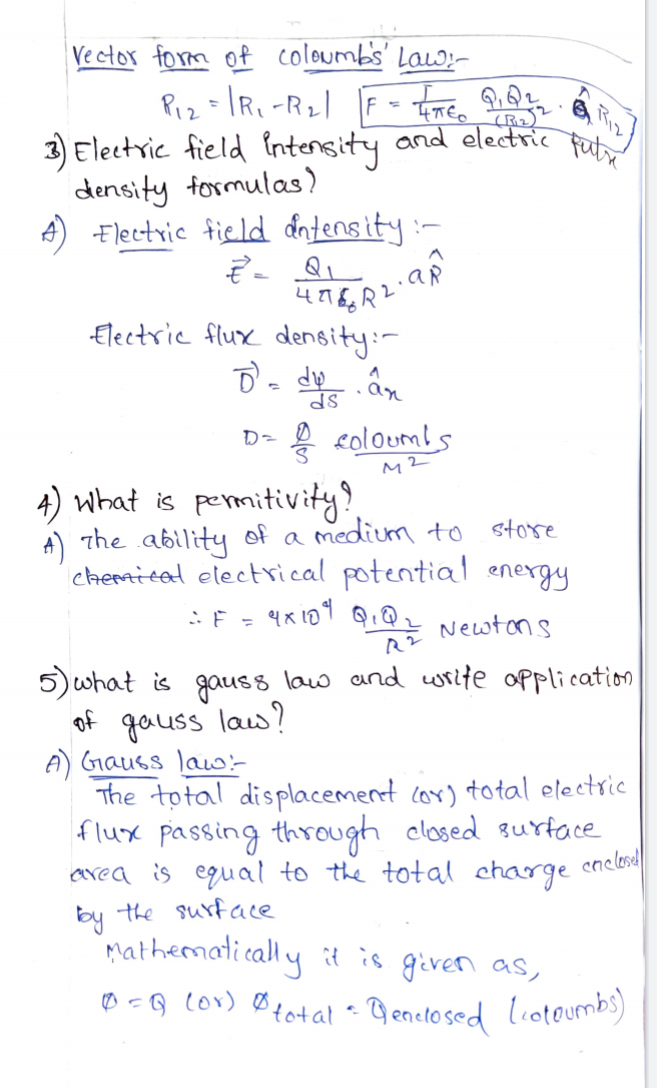 Vector form of coloumb's' Law:-
R₁₂ = |R₁ - R₂| F = 1/4πϵ₀ Q₁Q₂/(R₁₂)² . â R₁₂
3) Electric field intensity and electric
density formulas?
A) Electric field intensity :-
E⃗ = Q₁/4πϵ₀R² . aR̂
Electric flux density:-
D⃗ = dψ/ds . ân
D = Ø/S coloumbs/M²
4) What is permitivity?
A) The ability of a medium to store
chemical electrical potential energy
∴ F = 9×10⁹ Q₁Q₂/R² Newtons
5) what is gauss law and write application
of gauss law?
A) Gauss law:-
The total displacement (or) total electric
flux passing through closed surface
area is equal to the total charge enclosed
by the surface
Mathematically it is given as,
Ø = Q (or) Øtotal = Qenclosed (coloumbs)